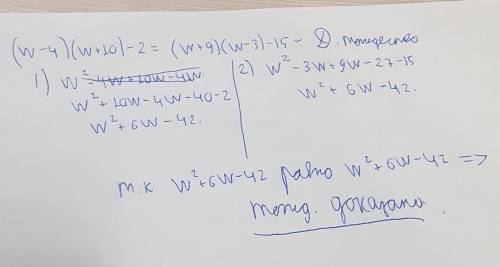 (w-4)(w+10)-2 = (w+9)(w-3)-15 - Д. тождество
1) w²-4w+10w-4w
w²+10w-4w-40-2
w²+6w-42.
2) w²-3w+9w-27-15
w²+6w-42.
т.к w²+6w-42 равно w²+6w-42 =>
тожд. доказано.